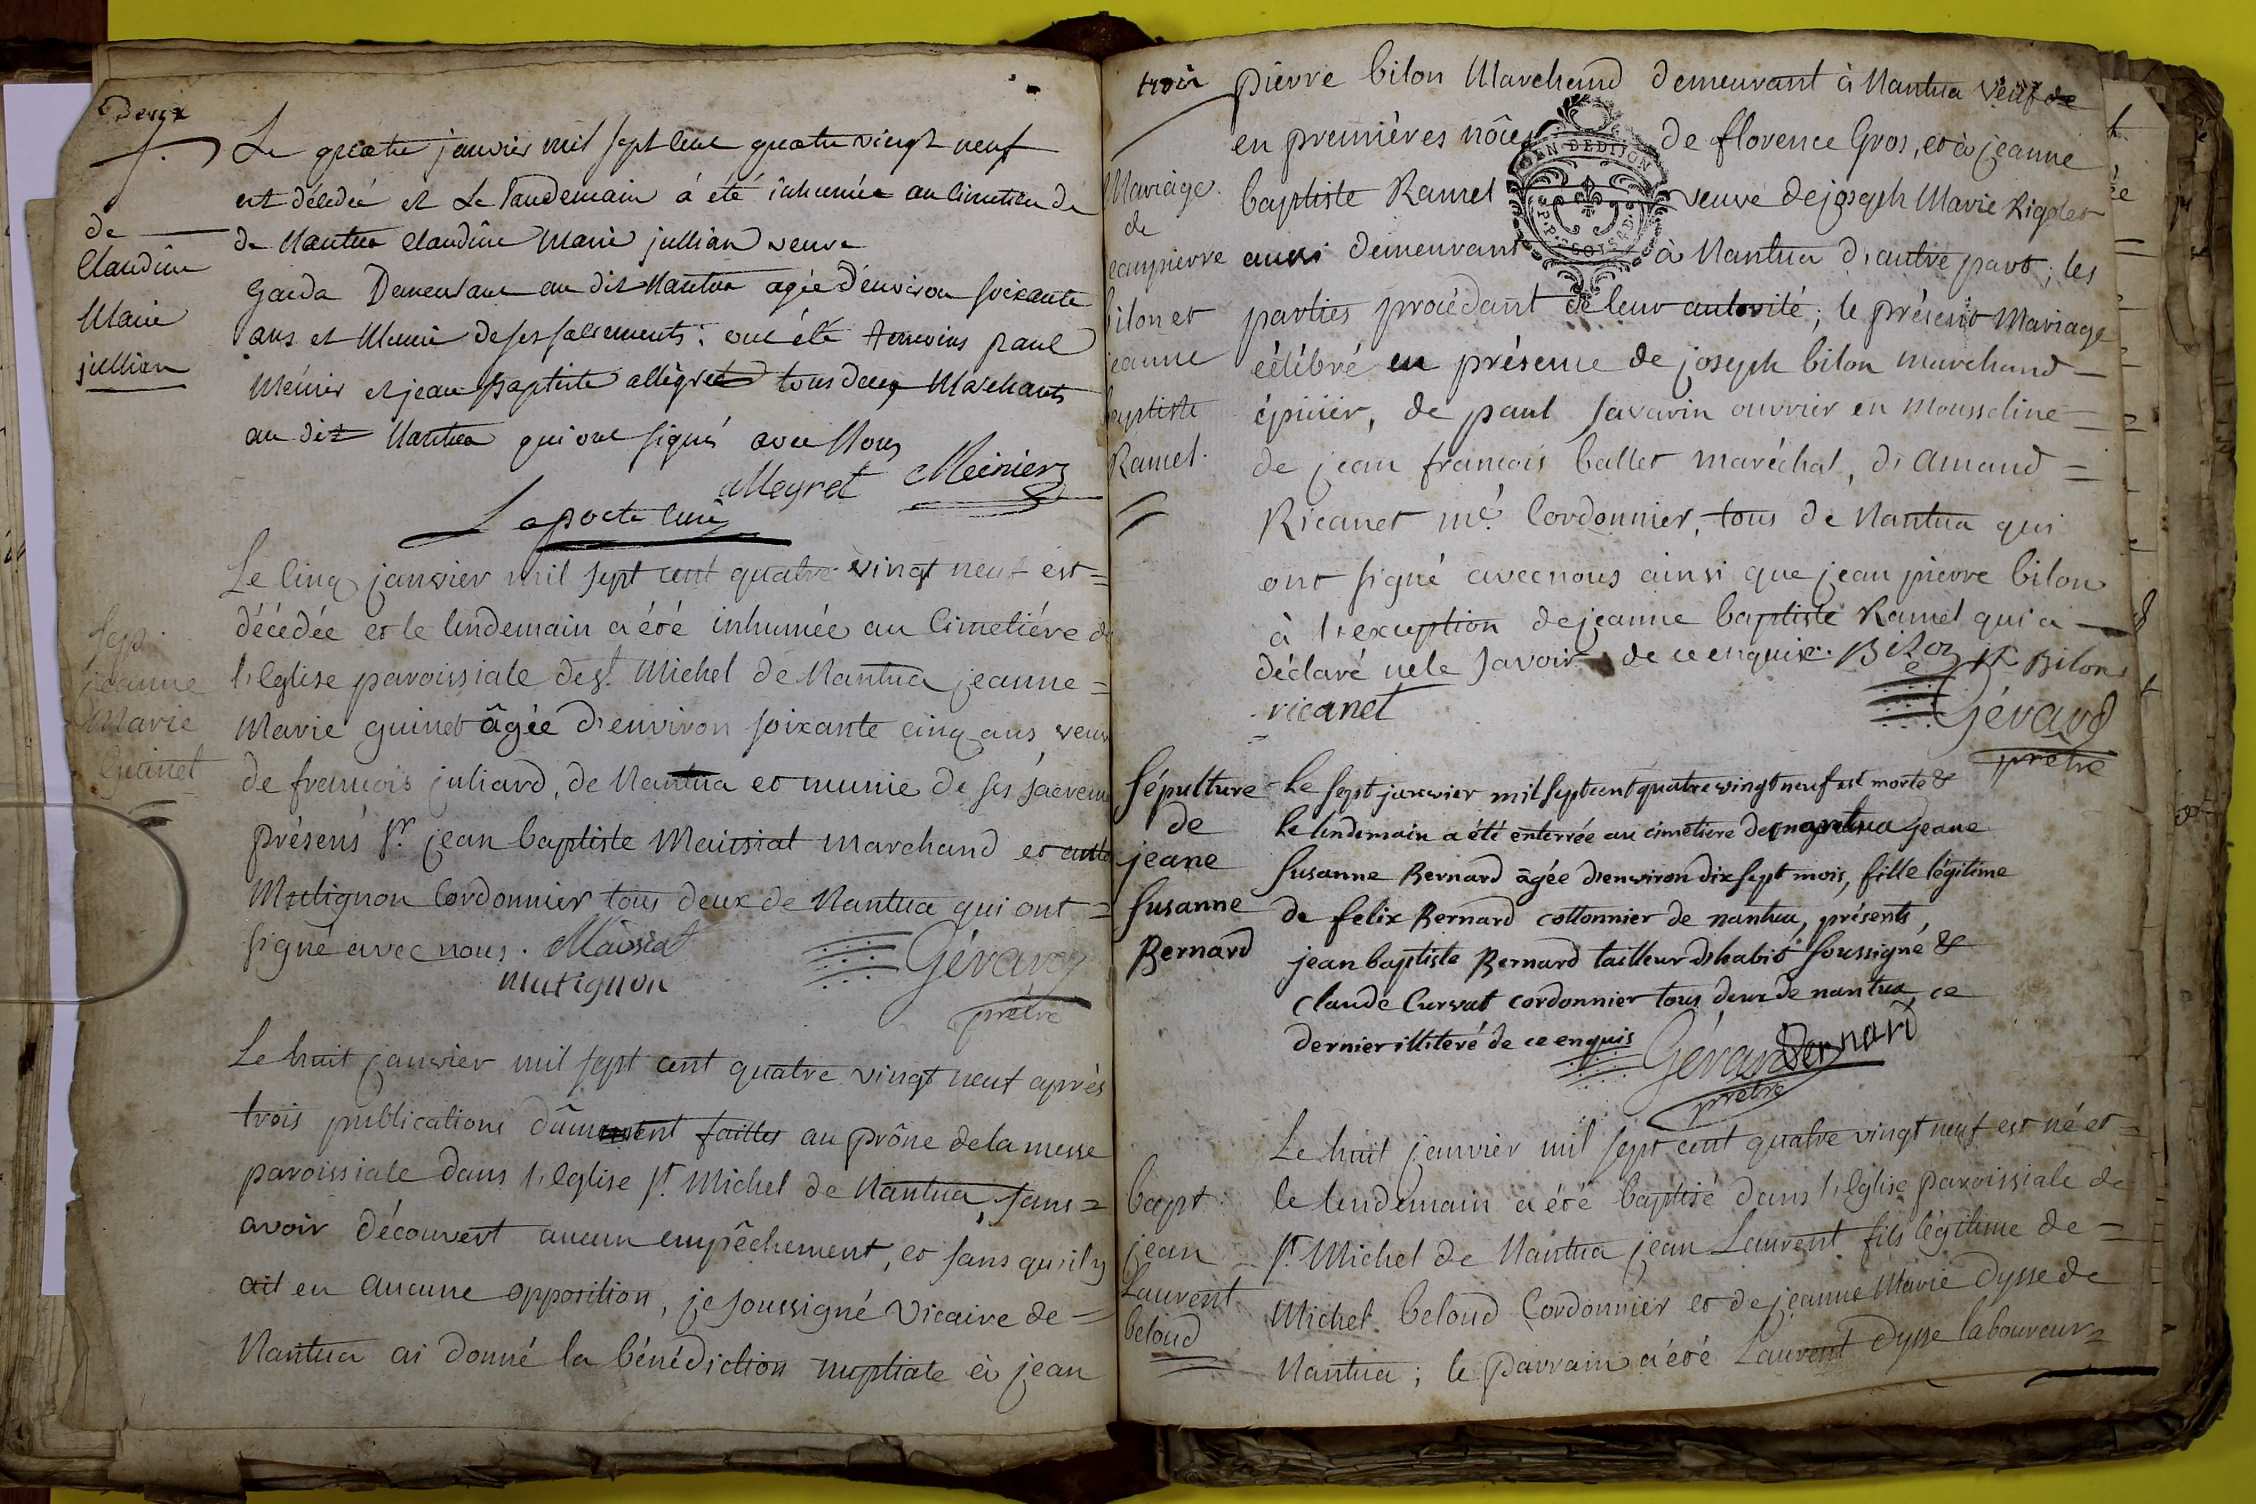 Deux
Le quatre janvier mil sept cent quatre vingt neuf
est décédée et Le landemain à été inhumée au Cimetiere de
de Nantua Claudine Marie jullian veuve
Demeurant au dit Nantua agée d'environ soixante
ans et Munie de ses sacrements; ont été temoins paul
Meinier et jean Baptiste allègret tous deux Marchants
au dit Nantua qui ont signés avec Nous
de
Claudine
Marie
jullian
allegret Meinier
Laporte Curé
Le Cinq janvier mil sept cent quatre vingt neuf est=
décédée et le lendemain a été inhumée au Cimetiére de
l'Eglise paroissiale de St. Michel de Nantua jeanne=
Marie guinet âgée d'environ soixante cinq ans, veuve
de francois juliard, de Nantua et munie de ses sacrem
présens Sr. jean baptiste Maissiat marchand et
Mutignon Cordonnier tous deux de Nantua qui ont=
signé avec nous. Maissiat
Sep.
jeanne
Marie
Guinet
mutignon
Gérard
prêtre
Le huit janvier mil sept cent quatre vingt neuf après
trois publications dûment faittes au prône de la messe
paroissiale dans l'Eglise St. Michel de Nantua, sans=
avoir découvert aucun empêchement, et sans qu'il y
ait eu aucune opposition, je soussigné Vicaire de=
Nantua ai donné la bénédiction nuptiale à jean
trois
pierre bilon Marchand demeurant à Nantua veuf de
en premières nôces de florence Gros, et à jeanne
baptiste Ramel veuve de joseph Marie Rigolet
aussi demeurant à Nantua d'autre part; les
parties procédant de leur autorité; le présent Mariage
célébré en présence de joseph bilon marchand
épicier, de paul savarin ouvrier en mousseline=
de jean francois ballet maréchal, d'Amand=
Ricanet me. Cordonnier, tous de Nantua qui
ont signé avec nous ainsi que jean pierre bilon
à l'exception de jeanne baptiste Ramel qui a
déclaré ne le savoir de ce enquise. Bilon Bilon
ricanet
Gérard
prêtre
Mariage
de
jeanpierre
bilon et
jeanne
baptiste
Ramel.
EN. DE DIJON
Sépulture
de
jeane
Susanne
Bernard
Le sept janvier mil sept cent quatre vingt neuf est morte &
le lendemain a été enterrée au cimetiere de nantua jeane
Susanne Bernard âgée d'environ dix sept mois, fille légitime
de felix Bernard cottonnier de nantua, présents,
jean baptiste Bernard tailleur d'habit soussigné &
claude Curvat cordonnier tous deux de nantua, ce
dernier illiteré de ce enquis
Gérard Bernard
prêtre
bapt.
jean
Laurent
beloud
Le huit janvier mil sept cent quatre vingt neuf est né et=
le lendemain a été baptisé dans l'Eglise paroissiale de
St. Michel de Nantua jean Laurent fils légitime de=
Michel beloud Cordonnier et de jeanne Marie Dysse de
Nantua; le parrain a été Laurent Dysse laboureur=